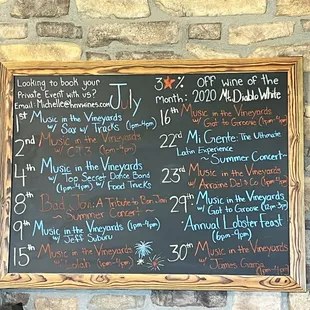 Looking to book your
Private Event with us?
Email: Michelle@hmwines.com
July
1st Music in the Vineyards
w/ Sax w/ Trucks (1pm-4pm)
2nd Music in the Vineyards
(1pm-4pm)
4th Music in the Vineyards
w/ Top Secret Dance Band
(1pm-4pm) w/ Food Trucks
8th Bad Jovi: A Tribute to Bon Jovi
~ Summer Concert ~
9th Music in the Vineyards
w/ Jeff Suburu
15th Music in the Vineyards
(1pm-4pm)
% off wine of the
Month: 2020 Mt. Diablo White
16th Music in the Vineyards
w/ Goat to Groove (1pm-4pm)
22nd Mi Gente: The Ultimate
Latin Experience
~ Summer Concert ~
23rd Music in the Vineyards
w/ & Co (1pm-4pm)
29th Music in the Vineyards
w/ Goat to Groove
Annual Lobster Feast
(6pm-9pm)
30th Music in the Vineyards
w/ James Garcia (1pm-4pm)